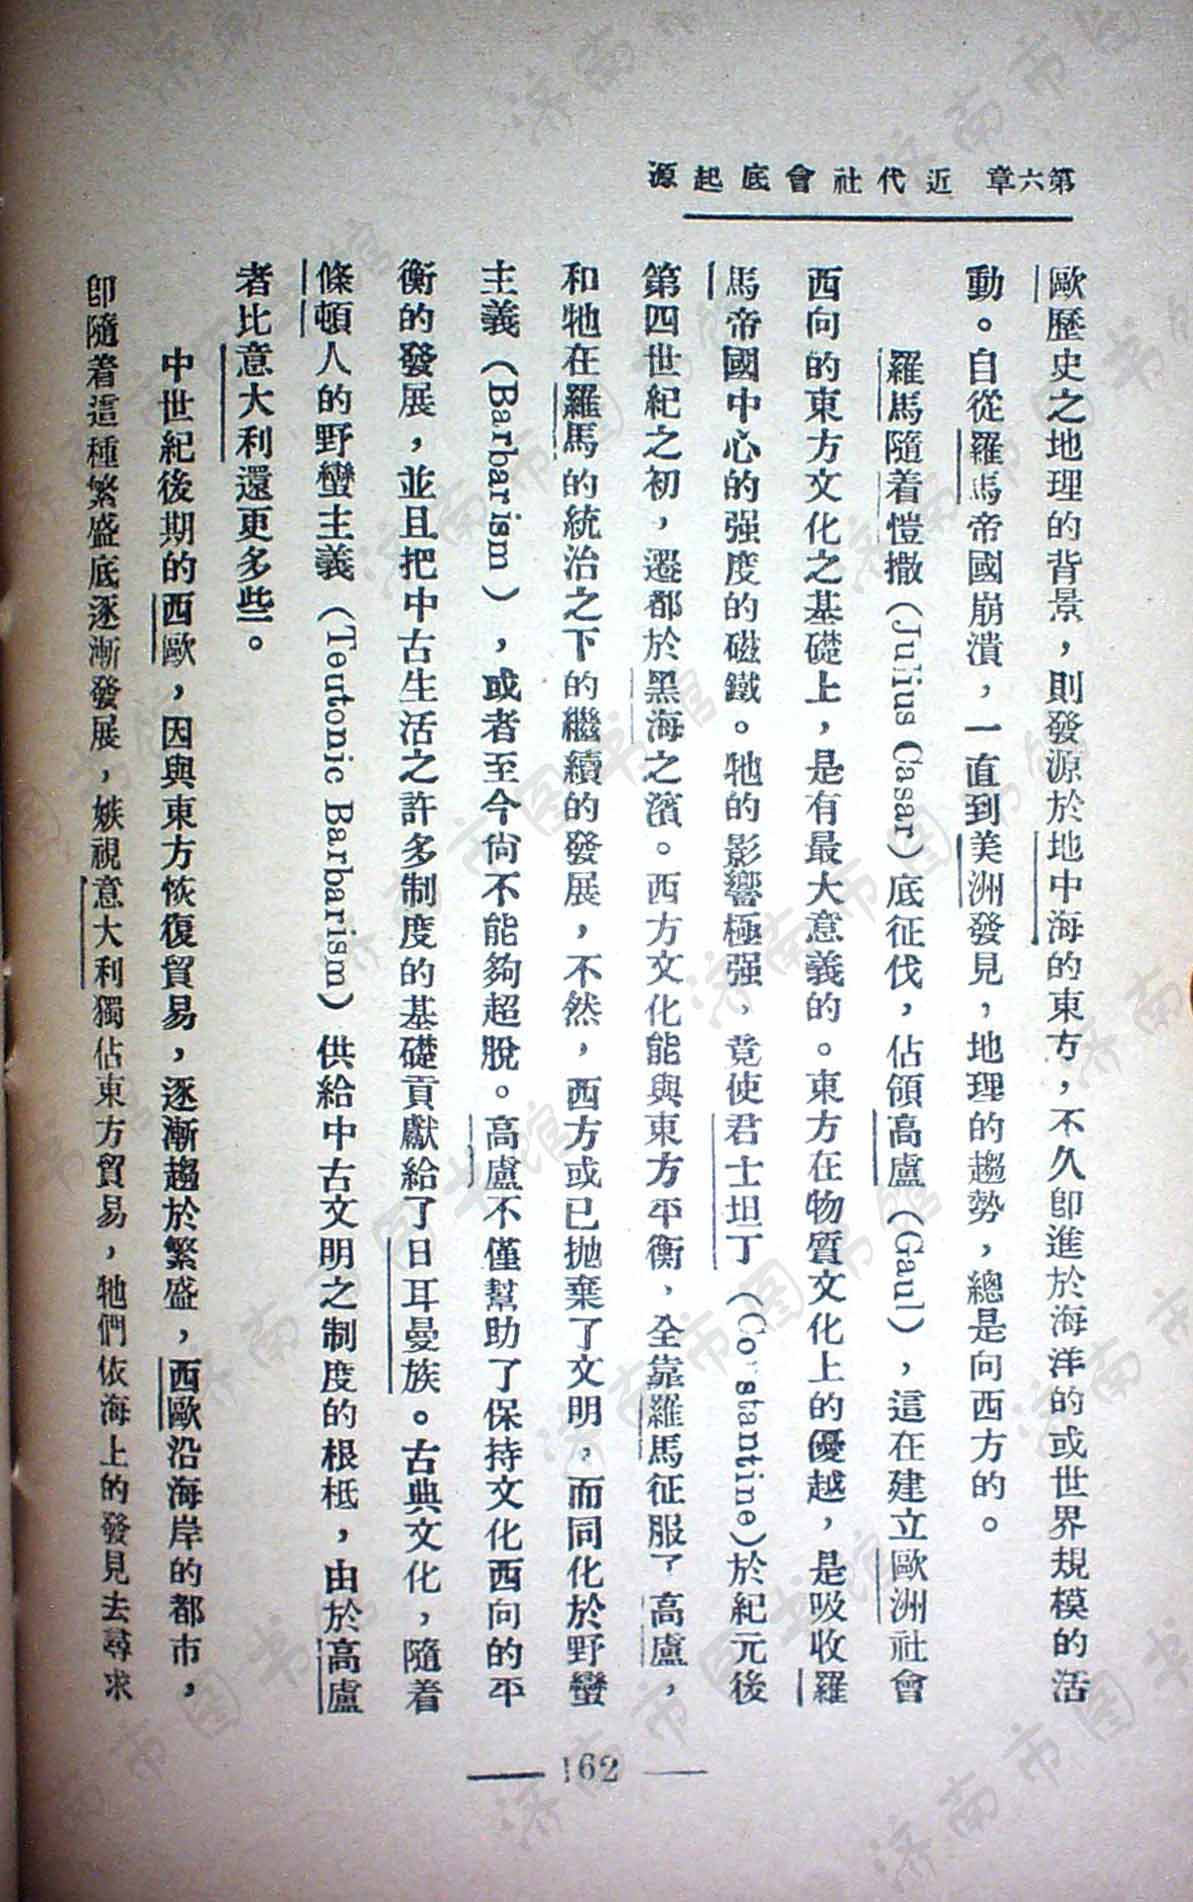 第六章　近代社會底起源
歐歷史之地理的背景，則發源於地中海的東方，不久卽進於海洋的或世界規模的活
動。自從羅馬帝國崩潰，一直到美洲發見，地理的趨勢，總是向西方的。
羅馬隨着愷撒（Julius Casar）底征伐，佔領高盧（Gaul），這在建立歐洲社會
西向的東方文化之基礎上，是有最大意義的。東方在物質文化上的優越，是吸收羅
馬帝國中心的强度的磁鐵。牠的影響極强，竟使君士坦丁（Co stantine）於紀元後
第四世紀之初，遷都於黑海之濱。西方文化能與東方平衡，全靠羅馬征服了高盧，
和牠在羅馬的統治之下的繼續的發展，不然，西方或已抛棄了文明，而同化於野蠻
主義（Barbarism），或者至今尙不能夠超脫。高盧不僅幫助了保持文化西向的平
衡的發展，並且把中古生活之許多制度的基礎貢獻給了日耳曼族。古典文化，隨着
條頓人的野蠻主義（Teutonic Barbarism）供給中古文明之制度的根柢，由於高盧
者比意大利還更多些。
中世紀後期的西歐，因與東方恢復貿易，逐漸趨於繁盛，西歐沿海岸的都市，
卽隨着這種繁盛底逐漸發展，嫉視意大利獨佔東方貿易，牠們依海上的發見去尋求
162
济南市图书馆